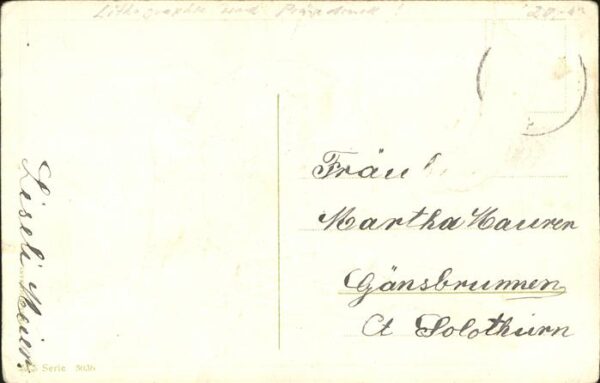 Lithographie und Prägedruck!
20.-
Fräul
Martha Maurer
Gänsbrunnen
Ct Solothurn
Liseli Meier
Serie 5036